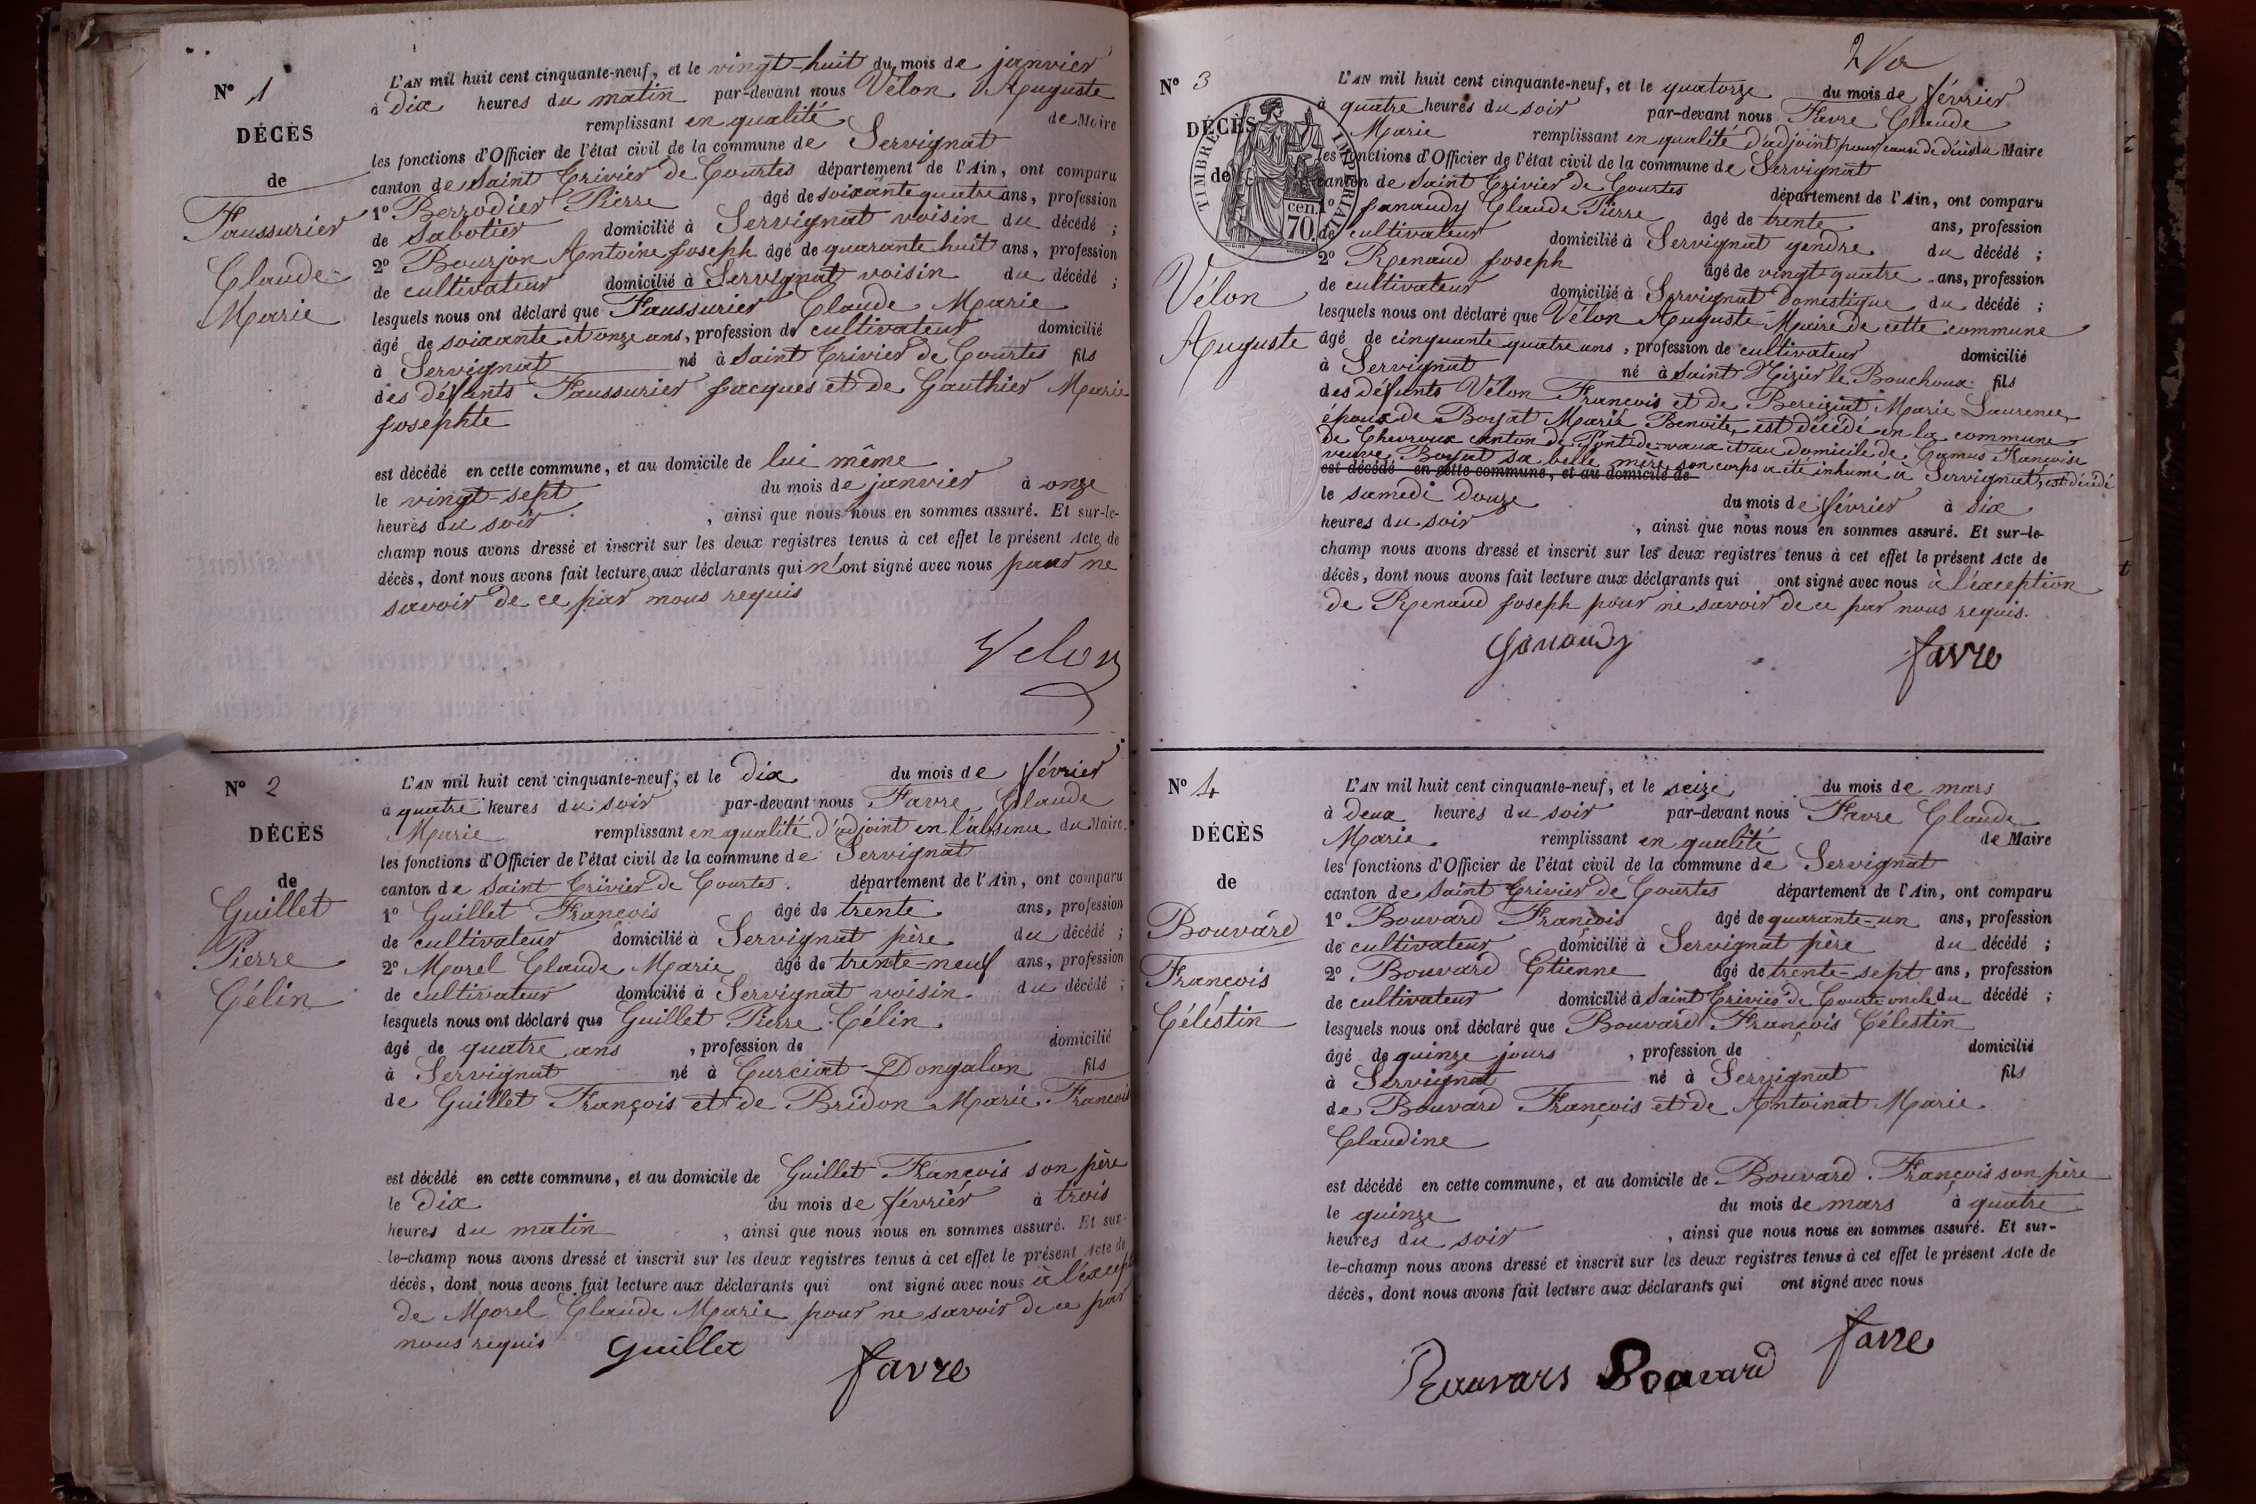 Nº 1
DÉCÈS
de
Faussurier
Claude
Marie
L'AN mil huit cent cinquante-neuf, et le vingt-huit du mois de janvier
à dix heures du matin par-devant nous Vélon Auguste
remplissant en qualité de Maire
les fonctions d'Officier de l'état civil de la commune de Servignat
canton de Saint Trivier de Courtes département de l'Ain, ont comparu
1º Berrodier Pierre âgé de soixante quatre ans, profession
de Sabotier domicilié à Servignat voisin du décédé ;
2º Bourjon Antoine Joseph âgé de quarante huit ans, profession
de cultivateur domicilié à Servignat voisin du décédé ;
lesquels nous ont déclaré que Faussurier Claude Marie
âgé de soixante et onze ans, profession de cultivateur domicilié
à Servignat né à Saint Trivier de Courtes fils
des défunts Faussurier Jacques et de Gauthier Marie
Josephte
est décédé en cette commune, et au domicile de lui même
le vingt-sept du mois de janvier à onze
heures du soir , ainsi que nous nous en sommes assuré. Et sur-le-
champ nous avons dressé et inscrit sur les deux registres tenus à cet effet le présent Acte de
décès, dont nous avons fait lecture aux déclarants qui n'ont signé avec nous pour ne
savoir de ce par nous requis
Velon
Nº 2
DÉCÈS
de
Guillet
Pierre
Célin
L'AN mil huit cent cinquante-neuf, et le dix du mois de février
à quatre heures du soir par-devant nous Favre Claude
Marie remplissant en qualité d'adjoint en l'absence du Maire
les fonctions d'Officier de l'état civil de la commune de Servignat
canton de Saint Trivier de Courtes. département de l'Ain, ont comparu
1º Guillet François âgé de trente ans, profession
de cultivateur domicilié à Servignat père du décédé ;
2º Morel Claude Marie âgé de trente-neuf ans, profession
de cultivateur domicilié à Servignat voisin du décédé ;
lesquels nous ont déclaré que Guillet Pierre Célin
âgé de quatre ans , profession de domicilié
à Servignat né à Curciat-Dongalon fils
de Guillet François et de Bridon Marie François
est décédé en cette commune, et au domicile de Guillet François son père
le dix du mois de février à trois
heures du matin , ainsi que nous nous en sommes assuré. Et sur-
le-champ nous avons dressé et inscrit sur les deux registres tenus à cet effet le présent Acte de
décès, dont nous avons fait lecture aux déclarants qui ont signé avec nous à l'excep
de Morel Claude Marie pour ne savoir de ce par
nous requis
Guillet favre
Nº 3
DÉCÈS
de
TIMBRE IMPERIAL
cen.
70.
Vélon
Auguste
L'AN mil huit cent cinquante-neuf, et le quatorze du mois de février
à quatre heures du soir par-devant nous Favre Claude
Marie remplissant en qualité d'adjoint pour cause de décès du Maire
les fonctions d'Officier de l'état civil de la commune de Servignat
canton de Saint Trivier de Courtes département de l'Ain, ont comparu
1º Janaudy Claude Pierre âgé de trente ans, profession
de cultivateur domicilié à Servignat gendre du décédé ;
2º Renaud Joseph âgé de vingt quatre ans, profession
de cultivateur domicilié à Servignat domestique du décédé ;
lesquels nous ont déclaré que Vélon Auguste Maire de cette commune
âgé de cinquante quatre ans, profession de cultivateur domicilié
à Servignat né à Saint Nizier le Bouchoux fils
des défunts Vélon François et de Bereiziat Marie Laurence
époux de Boyat Marie Benoite, est décédé en la commune
de Chevroux canton de Pontdevaux et au domicile de Camus Françoise
veuve Boyat sa belle mère, son corps a été inhumé à Servignat, est décédé
est décédé en cette commune, et au domicile de
le samedi douze du mois de février à six
heures du soir , ainsi que nous nous en sommes assuré. Et sur-le-
champ nous avons dressé et inscrit sur les deux registres tenus à cet effet le présent Acte de
décès, dont nous avons fait lecture aux déclarants qui ont signé avec nous à l'exception
de Renaud Joseph pour ne savoir de ce par nous requis.
Janaudy favre
Nº 4
DÉCÈS
de
Bouvard
François
Célestin
L'AN mil huit cent cinquante-neuf, et le seize du mois de mars
à deux heures du soir par-devant nous Favre Claude
Marie remplissant en qualité de Maire
les fonctions d'Officier de l'état civil de la commune de Servignat
canton de Saint Trivier de Courtes département de l'Ain, ont comparu
1º Bouvard François âgé de quarante-un ans, profession
de cultivateur domicilié à Servignat père du décédé ;
2º Bouvard Etienne âgé de trente-sept ans, profession
de cultivateur domicilié à Saint Trivier de Courte oncle du décédé ;
lesquels nous ont déclaré que Bouvard François Célestin
âgé de quinze jours , profession de domicilié
à Servignat né à Servignat fils
de Bouvard François et de Antoinat Marie
Claudine
est décédé en cette commune, et au domicile de Bouvard François son père
le quinze du mois de mars à quatre
heures du soir , ainsi que nous nous en sommes assuré. Et sur-
le-champ nous avons dressé et inscrit sur les deux registres tenus à cet effet le présent Acte de
décès, dont nous avons fait lecture aux déclarants qui ont signé avec nous
Bouvard favre